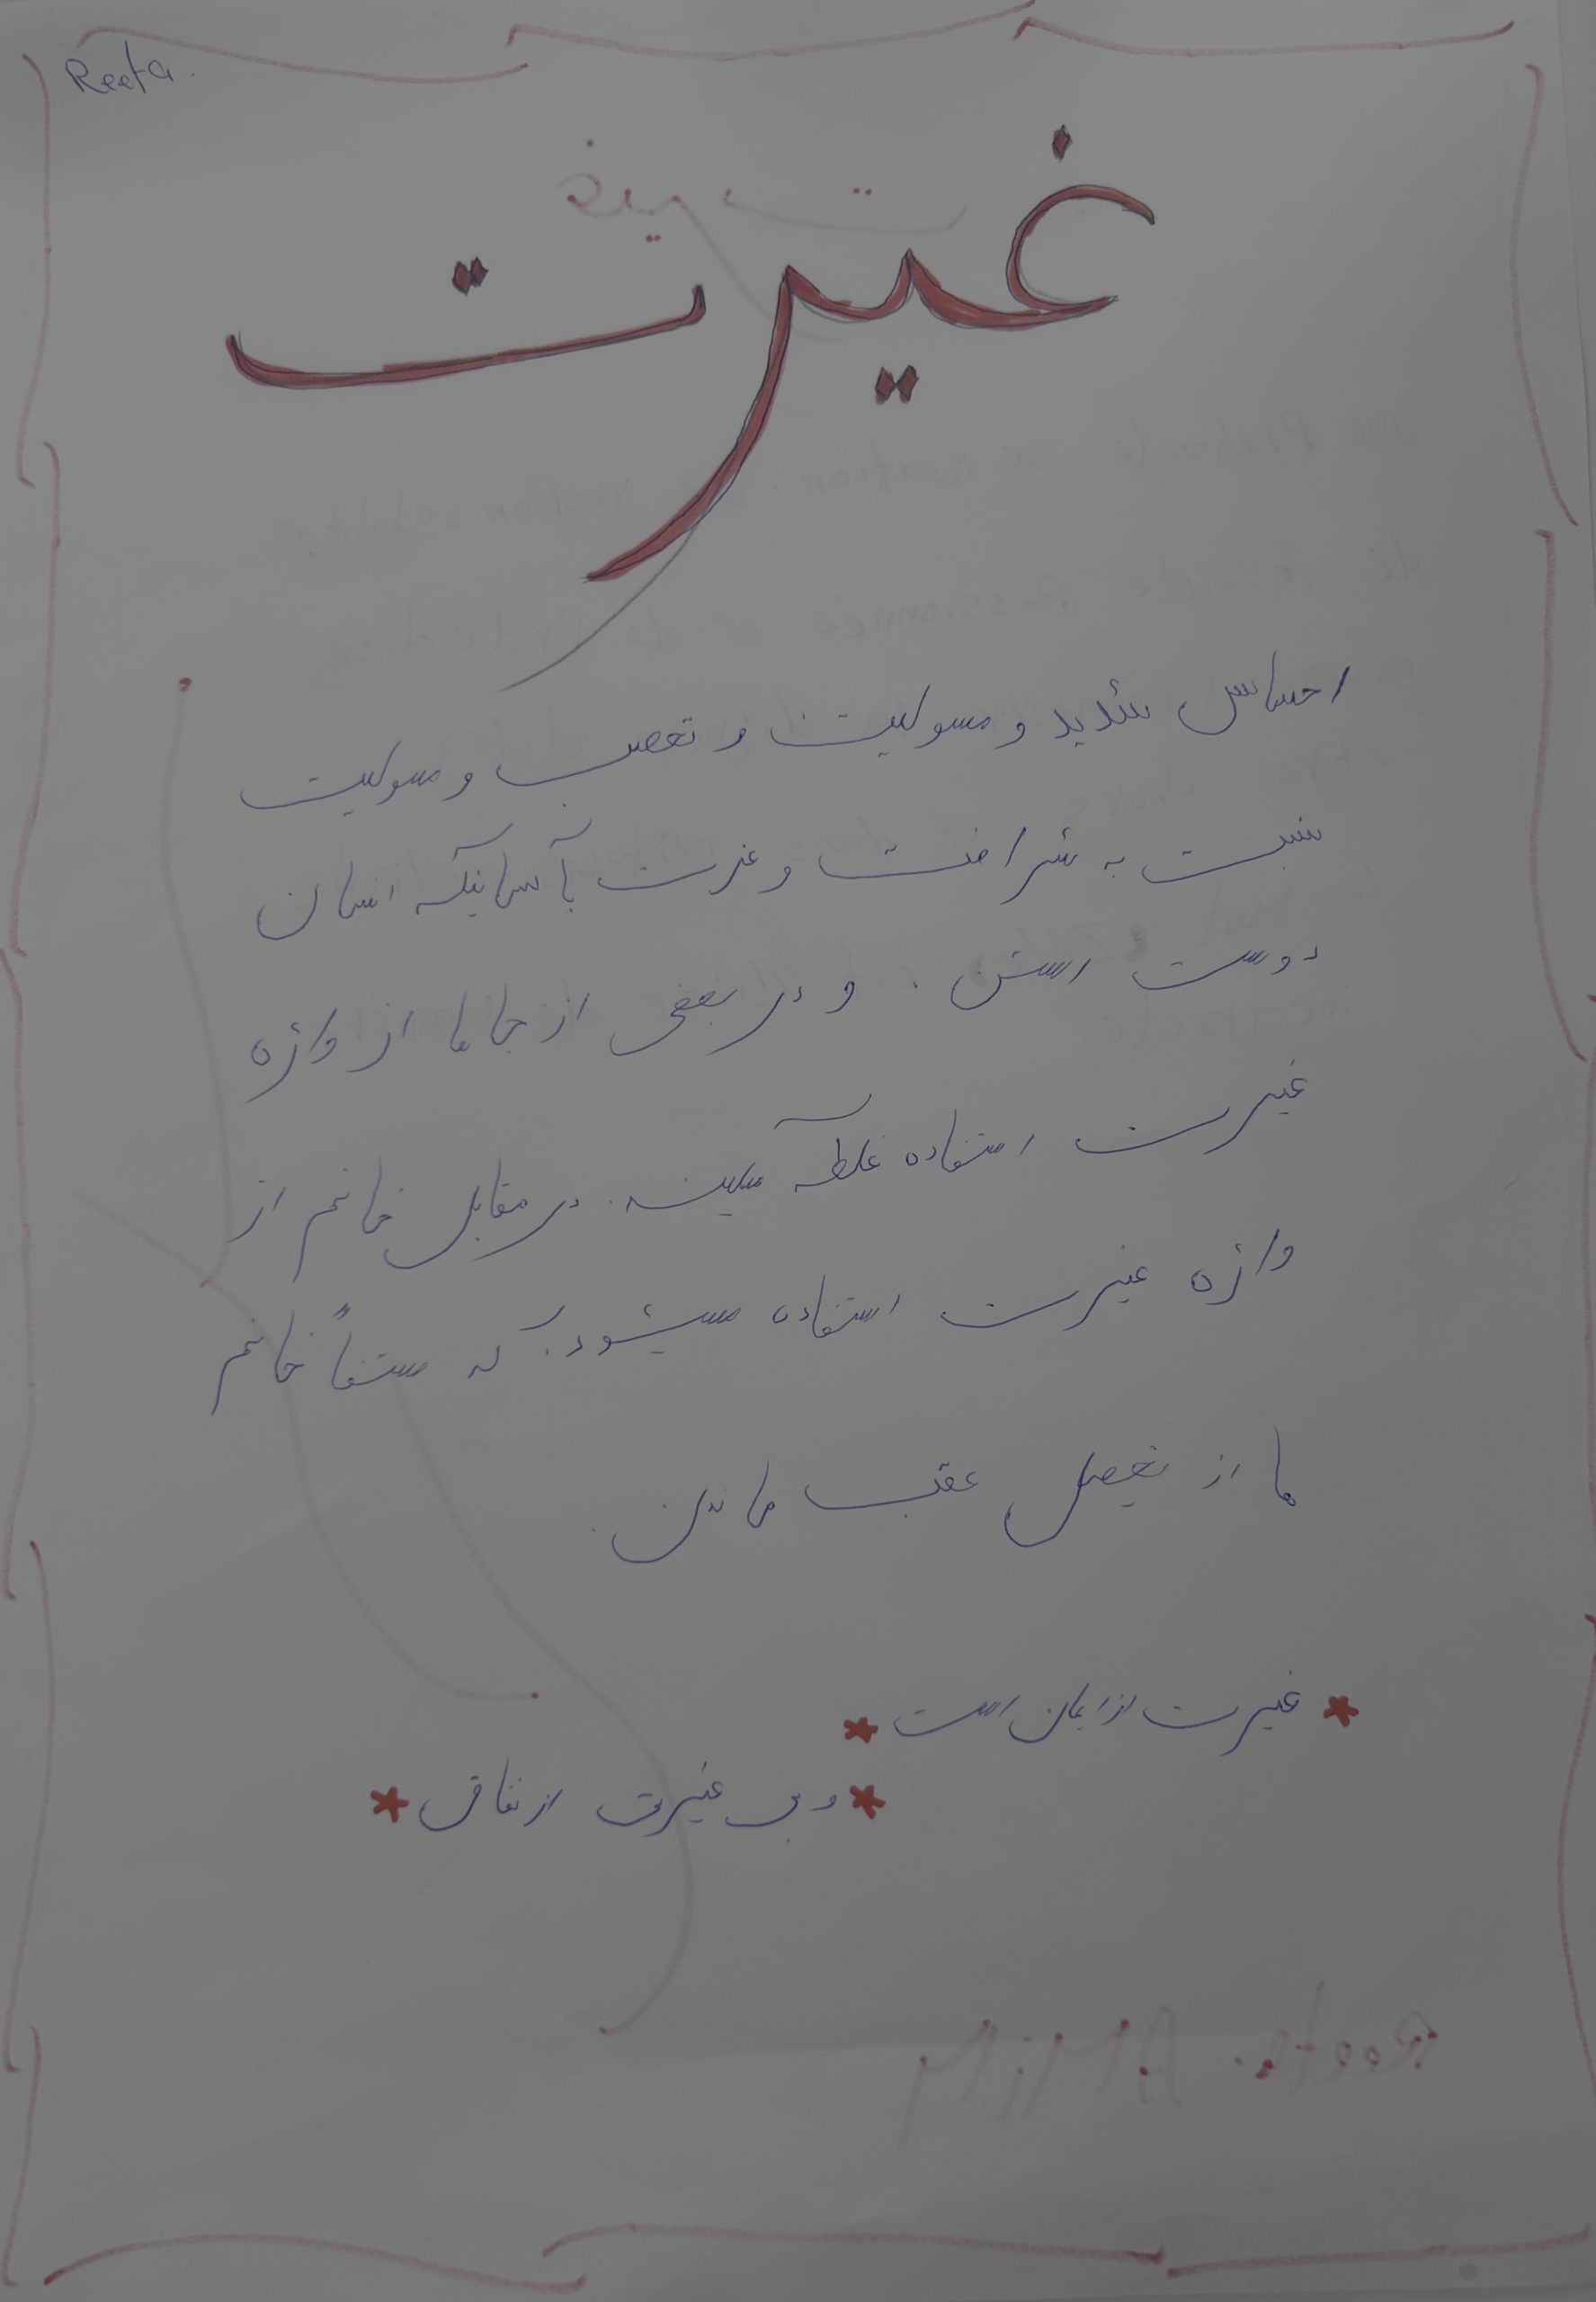 Reeta.
غیرت
احساس شدید و مسولیت و تعصب و مسولیت
نسبت به شرافت و عزت با کسانیکه انسان
دوست استن. و در بعضی از جا ها از واژه
غیرت استفاده غلط میکینه. در مقابل خانم از
واژه غیرت استفاده میشود. که مستقاً خانم
ها از تحصیل عقب ماندن.
* غیرت از ایمان است *
* و بی غیرتی از نفاق *